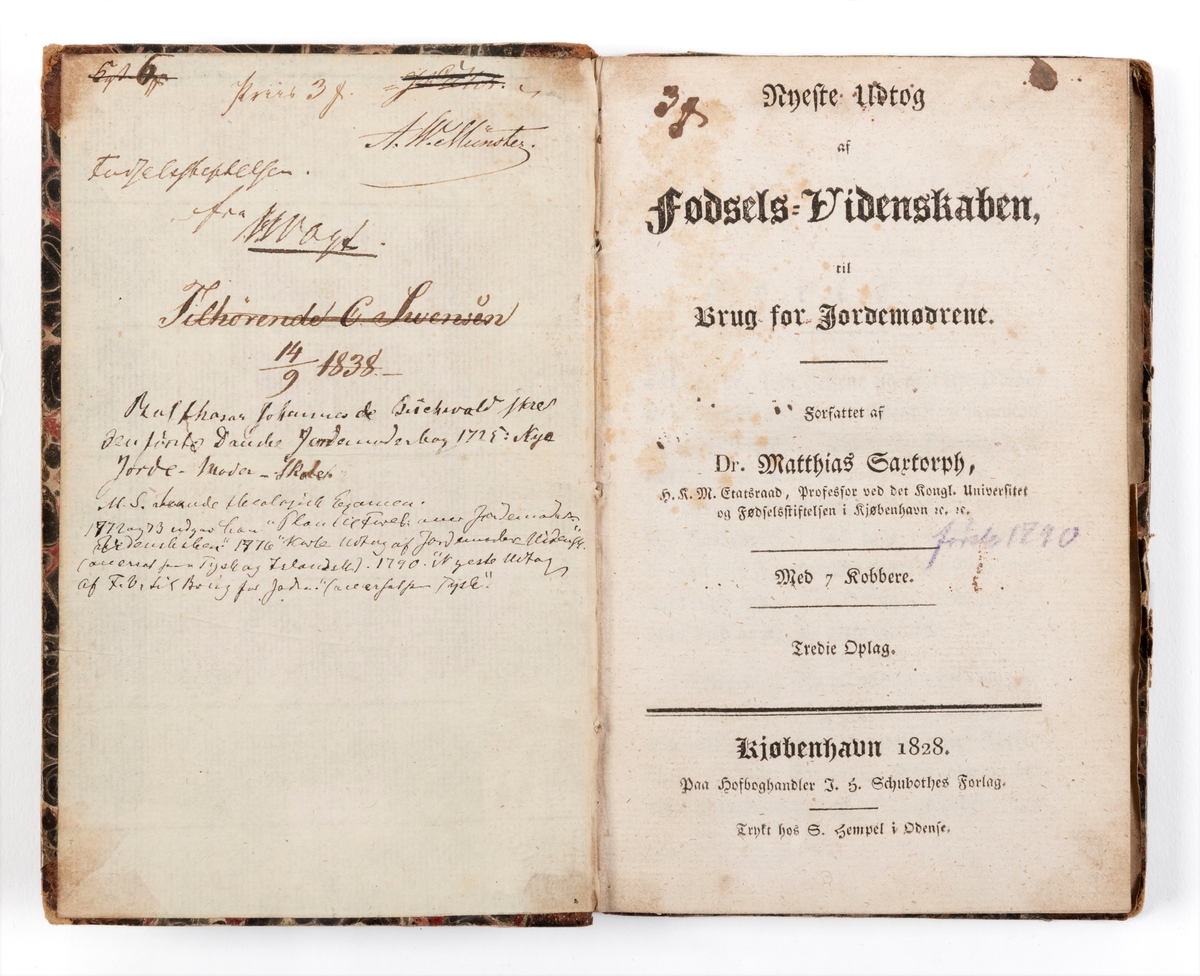 Priis 3
A. W. Münster.
fra
Vogt.
Tilhörende C. Svensön
14/9 1838
Balthasar Johannes de Buchwald skrev
den förste Danske Jordemoderbog 1725: Nye
Jorde-Moder-Skole
M. S. havde theologisk Examen.
1772 og 73 udgav han "Plan til Forel. over Jordemoder
Videnskaben" 1776 "Korte Udtog af Jordemoder Vidensk.
(oversat paa Tysk og Islandsk). 1790: "Nyeste Udtog
af F. V. til Brug for Jordm." (oversat paa Tysk".
3
Nyeste Udtog
af
Fødsels-Videnskaben,
til
Brug for Jordemødrene.
Forfattet af
Dr. Matthias Saxtorph,
H. K. M. Etatsraad, Professor ved det Kongl. Universitet
og Fødselsstiftelsen i Kjøbenhavn ꝛc. ꝛc.
første 1790
Med 7 Kobbere.
Tredie Oplag.
Kjøbenhavn 1828.
Paa Hofboghandler J. H. Schubothes Forlag.
Trykt hos S. Hempel i Odense.